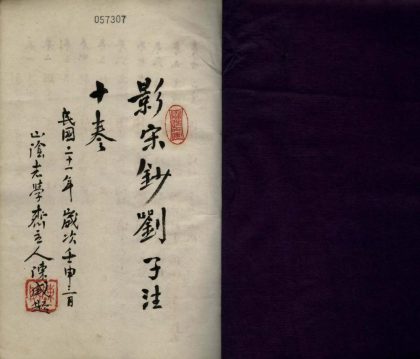 057307
影宋鈔劉子注
十卷
民國二十一年歲次壬申一月
山陰老學齋主人陳威題